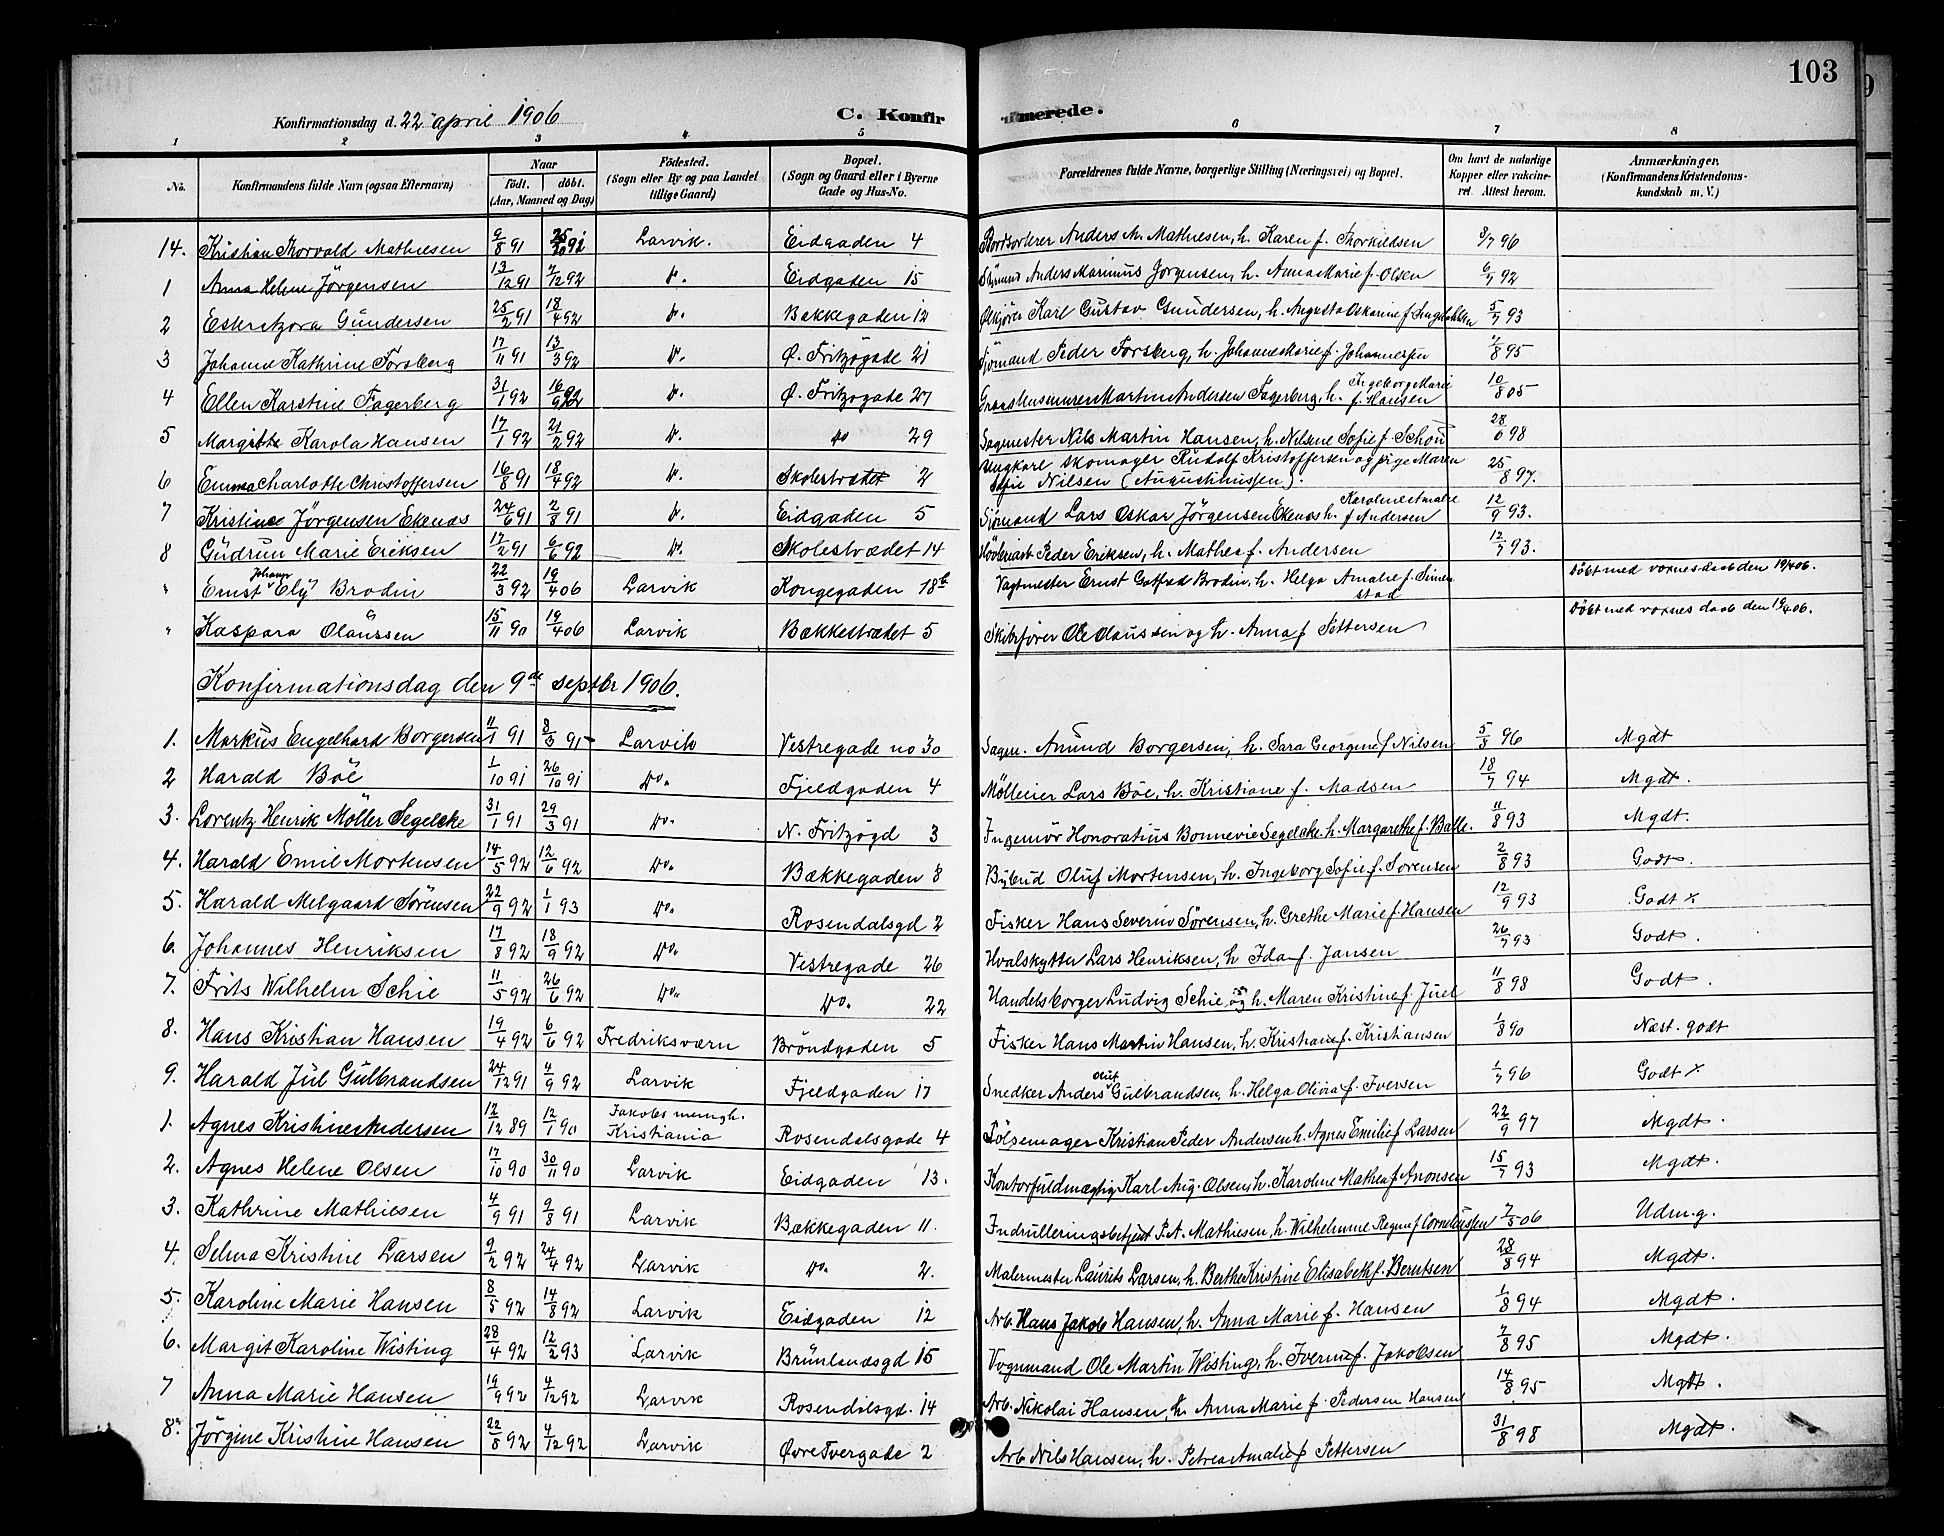 103
Konfirmationsdag d. 22 april 1906 C. Konfirmerede.
1 2 3 4 5 6 7 8
No. Konfirmandens fulde Navn (ogsaa Efternavn) Naar födt. döbt. (Aar, Maaned og Dag) Födested. (Sogn eller By og paa Landet tillige Gaard) Bopæl. (Sogn og Gaard eller i Byerne Gade og Hus-No. Forældrenes fulde Navne, borgerlige Stilling (Næringsvei) og Bopæl. Om havt de naturlige Kopper eller vakcineret. Attest herom. Anmærkninger. (Konfirmandens Kristendomskundskab m. V.)
14. Kristian Thorvald Mathiesen 9/8 91 25/10 91 Larvik. Eidgaden 4 Bordsorterer Anders M. Mathiesen, h. Karen f. Thorkildsen 3/7 96
1 Anna Helene Jörgensen 13/12 91 7/12 92 do. Eidgaden 15 Styrmand Anders Marinius Jörgensen, h. Anna Marie f. Olsen 6/7 92
2 Ester Tzora Gundersen 25/2 91 18/4 92 do. Bakkegaden 12 Ølkjører Karl Gustav Gundersen, h. Augusta Oskarine f. 5/7 93
3 Johanne Kathrine Forsberg 17/11 91 13/3 92 do. Ø. Fritzögade 21 Sjömand Peder Forsberg, h. Johanne Marie f. Johannessen 7/8 95
4 Ellen Karstine Fagerberg 31/1 92 16/9 92 do. Ø. Fritzögade 27 Martin Andersen Fagerberg, h. Ingeborg Marie f. Hansen 10/8 05
5 Margitte Karola Hansen 17/1 92 21/2 92 do. do 29 Sagmester Nils Martin Hansen, h. Nilsine Sofie f. Schou 28/6 98
6 Emma Charlotte Christoffersen 16/8 91 18/4 92 do. Skolestrædet 2 Ungkarl skomager Rudolf Kristoffersen og pige Maren Sofie Nilsen (Augusthinssen). 25/8 97.
7 Kristine Jörgensen Ekenæs 24/6 91 2/8 91 do. Eidgaden 5 Sjömand Lars Oskar Jörgensen Ekenæs h. Karoline Amalie f Andersen 12/9 93.
8 Gudrun Marie Eriksen 17/2 91 6/6 92 do. Skolestrædet 14 Peder Eriksen, h. Mathea f. Andersen 12/7 93.
" Ernst Johann Ely Brodin 22/3 92 19/4 06 Larvik Kongegaden 18b Vagtmester Ernst Gotfred Brodin, h. Helga Amalie f. Simenstad Döbt med voxnes daab den 19/4 06.
" Kaspara Olaussen 15/11 90 19/4 06 Larvik Bækkestrædet 5 Skibsförer Ole Olaussen og h. Anna f Pettersen Döbt med voxnes daab den 19/4 06.
Konfirmationsdag den 9de septbr 1906.
1. Markus Engelhard Borgersen 11/1 91 8/3 91 Larvik Vestregade no 30 Sagm. Amund Borgersen, h. Sara Georgine f Nilsen 5/8 96 Mgdt
2 Harald Böe 1/10 91 26/10 91 do. Fjeldgaden 4 Mölleier Lars Böe, h. Kristiane f. Madsen 18/7 94 Mgdt.
3. Lorentz Henrik Möller Segelcke 31/1 91 29/3 91 do. N. Fritzögd 3 Ingeniör Honoratius Bonnevie Segelcke h. Margarethe f. Balle. 11/8 93 Mgdt.
4. Harald Emil Mortensen 14/5 92 12/6 92 do. Bækkegaden 8 Bybud Oluf Mortensen, h. Ingeborg Sofie f. Sorensen 2/8 93 Godt.
5. Harald Melgaard Sörensen 22/9 92 1/1 93 do. Rosendalsgd 2 Fisker Hans Severin Sörensen, h. Grethe Marie f. Hansen 12/9 93 Godt x
6. Johannes Henriksen 17/8 92 18/9 92 do. Vestregade 26 Hvalskytter Lars Henriksen, h Ida f. Jansen 26/7 93 Godt.
7. Frits Wilhelm Schie 11/5 92 26/6 92 do. do. 22 Handelsborger Ludvig Schie og h. Maren Kristine f. Juel 11/8 98 Godt.
8. Hans Kristian Hansen 19/4 92 6/6 92 Fredriksværn Bröndgaden 5 Fisker Hans Martin Hansen, h. Kristiane f. Kristiansen 1/8 90 Næst. godt
9. Harald Jul Gulbrandsen 24/12 91 4/9 92 Larvik Fjeldgaden 17 Snedker Anders Oluf Gulbrandsen, h. Helga Olivia f. Iversen 1/7 96 Godt x
1. Agnes Kristine Andersen 12/12 89 12/1 90 Jakobs menigh. Kristiania Rosendalsgade 4 Pölsemager Kristian Peder Andersen h. Agnes Emilie f Larsen 22/9 97 Mgdt.
2. Agnes Helene Olsen 17/10 90 30/11 90 Larvik Eidgaden 13. Kontorfuldmægtig Karl Aug. Olsen, h. Karoline Mathea f Anonsen 15/7 93 Mgdt.
3. Kathrine Mathiesen 4/9 91 9/8 91 Larvik Bækkegaden 11. Indrulleringsbetjent P. A. Mathiesen, h. Wilhelmine Regine f Corneliussen 7/5 06 Udm.g.
4. Selma Kristine Larsen 9/2 92 24/4 92 Larvik do. 2. Malermester Laurits Larsen, h. Berthe Kristine Elisabeth f. Berntsen 28/8 94 Mgdt.
5. Karoline Marie Hansen 8/5 92 14/8 92 Larvik Eidgaden 12 Arb. Hans Jakob Hansen, h. Anna Marie f. Hansen 1/8 94 Mgdt.
6. Margit Karoline Wisting 28/4 92 12/2 93 Larvik Brünlandsgd 15 Vognmand Ole Martin Wisting, h. Iverine f. Jakobsen 7/8 95 Mgdt.
7 Anna Marie Hansen 19/9 92 4/12 92 Larvik Rosendalsgd. 14 Arb. Nikolai Hansen, h. Anna Marie f. Pedersen Hansen 14/8 95 Mgdt.
8. Jörgine Kristine Hansen 22/8 92 4/12 92 Larvik Øvre Tvergade 2 Arb Nils Hansen, h. Petrea Amalie f Pettersen 31/8 98 Mgdt.